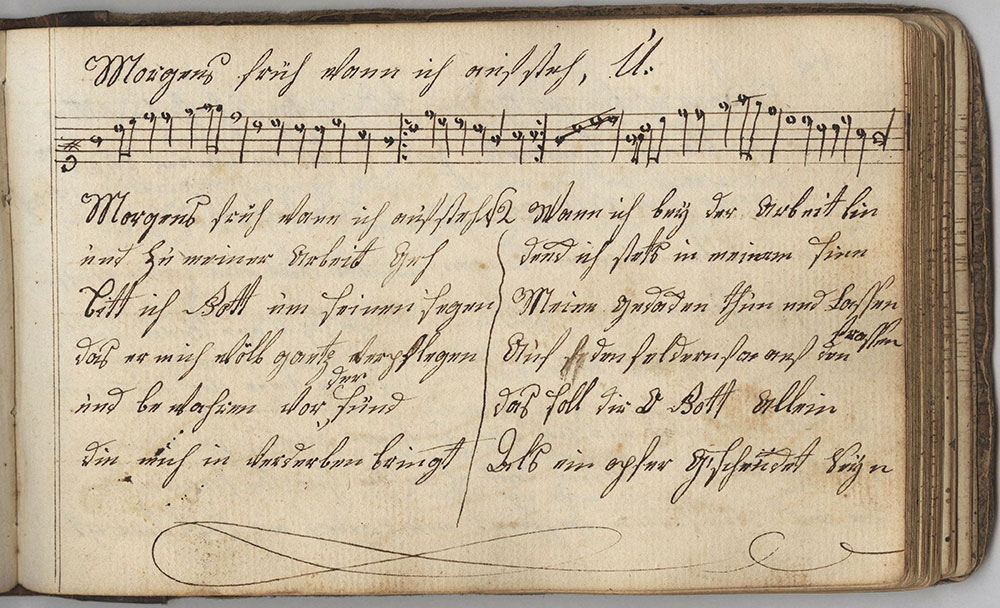 Morgens früh wann ich aufsteh, U.
Morgens früh wann ich aufsteh
und zu meiner Arbeit Geh
bitt ich Gott um seinen segen
das er mich wöll verpflegen
und bewahren vor der sünd
die mich in verderben bringt
2 Wann ich bey der Arbeit bin
denck ich stets in meinem sinn
Meine thun und Lassen
Auf den feldern auf den strassen
das soll dir O Gott Allein
Als ein opfer Gschencket Seyn